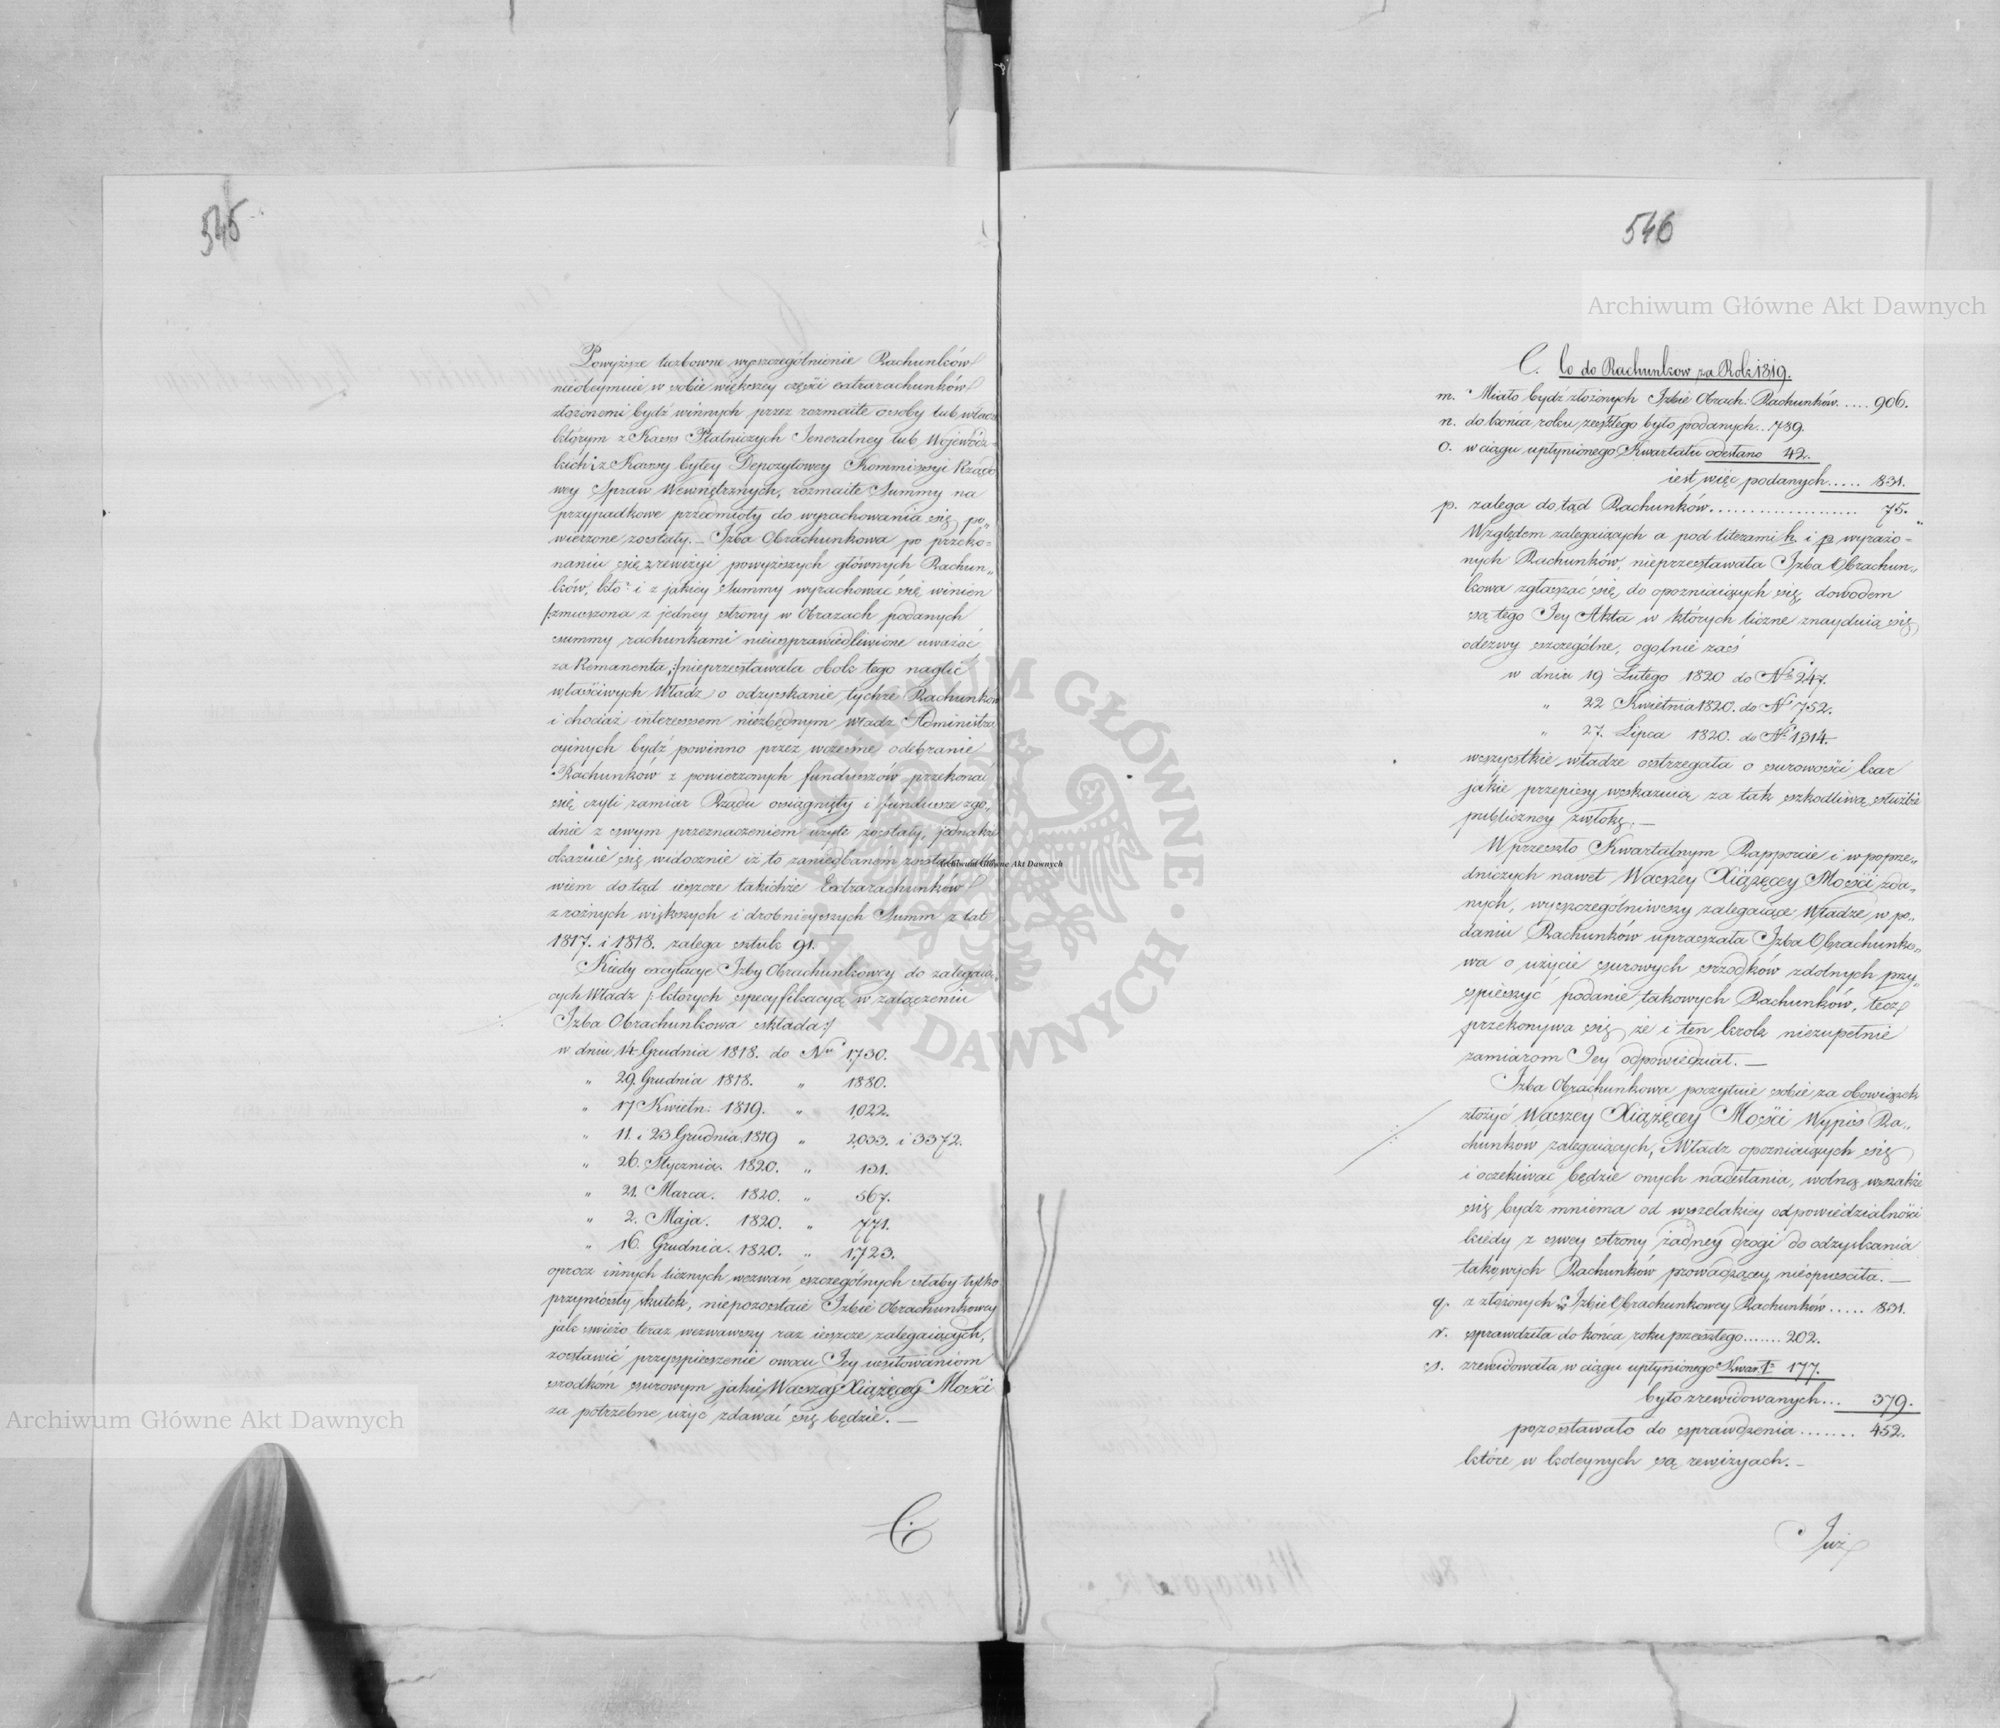 545
Powyższe liczbowne wyszczególnienie Rachunków
nieobeymuie w sobie większey części extrarachunków
złożonemi bydź winnych przez rozmaite osoby lub władze
którym z Kass Płatniczych Jeneralney lub Wojewódz-
kich i z Kassy byłey Depozytowey Kommissyi Rządo
wey Spraw Wewnętrznych, rozmaite Summy na
przypadkowe przedmioty do wyrachowania się po„
wierzone zostały. — Izba Obrachunkowa po przeko-
naniu się z rewizyi powyższych głównych Rachun„
ków, kto i z jakiey Summy wyrachować się winien
/:zmuszona z jedney strony w Obrazach podanych
summy rachunkami nieusprawiedliwione uważać
za Remanenta:/ nieprzestawała obok tego naglić
właściwych Władz o odzyskanie tychże Rachunków
i chociaż interessem niezbędnym władz Administra
cyinych bydź powinno przez wcześne odebranie
Rachunków z powierzonych funduszów przekonać
się czyli zamiar Rządu osiągnięty i fundusze zgo„
dnie z swym przeznaczeniem użyte zostały, jednakże
okazuie się widocznie iż to zaniedbanem zostało
wiem dotąd ieszcze takichże Extrarachunków
z rożnych większych i drobnieyszych Summ z lat
1817. i 1818. zalega sztuk 91.
Kiedy excytacye Izby Obrachunkowey do zalegaią„
cych Władz /: których specyfikacyą w załączeniu
Izba Obrachunkowa składa:/
w dniu 14 Grudnia 1818. do Nru 1,730.
„ 29. Grudnia 1818. „ 1880.
„ 17 Kwietn: 1819. „ 1,022.
„ 11. i 23 Grudnia 1819 „ 2,033. i 3372.
„ 26. Stycznia. 1820. „ 131.
„ 21. Marca. 1820. „ 567.
„ 2. Maja. 1820. „ 771.
„ 16. Grudnia. 1820. „ 1,723.
oprocz innych licznych wezwań szczególnych słaby tylko
przyniosły skutek, niepozostaie Izbie Obrachunkowey
jak swieżo teraz wezwawszy raz ieszcze zalegaiących,
zostawić przyspieszenie owocu Jey usiłowaniom
srodkom surowym jakie Waszay Xiążęcey Mości
za potrzebne użyć zdawać się będzie. —
C.
546
C. Co do Rachunkow za Rok 1819.
m. Miało bydź złożonych Izbie Obrach: Rachunków..... 906.
n. do końca roku zeszłego było podanych... 789.
o. w ciągu upłynionego Kwartału odesłano 42.
iest więc podanych..... 831.
p. zalega dotąd Rachunków.................... 75.
Względem zalegaiących a pod literami h. i p wyrażo-
nych Rachunków, nieprzestawała Izba Obrachun„
kowa zgłaszać się do opozniaiących się dowodem
są tego Jey Akta w których liczne znayduią się
odezwy szczególne, ogolnie zaś
w dniu 19 Lutego 1820 do No 247.
„ 22 Kwietnia 1820. do No 752.
„ 27. Lipca 1820. do No 1,314.
wszystkie władze ostrzegała o surowości kar
jakie przepisy wskazuią za tak szkodliwą służbie
publiczney zwłokę. —
W przeszło Kwartalnym Rapporcie i w poprze„
dniczych nawet Waszey Xiążęcey Mości zda„
nych, wyszczególniwszy zalegaiące Władze w po„
daniu Rachunków upraszała Izba Obrachunko„
wa o użycie surowych srzodków zdolnych przy„
spieszyć podanie takowych Rachunków, lecz
przekonywa się że i ten krok niezupełnie
zamiarom Jey odpowiedział. —
Izba Obrachunkowa poczytuie sobie za obowiązek
złożyć Waszey Xiążęcey Mości Wypis Ra„
chunków zalegaiących, Władz opozniaiących się
i oczekiwać będzie onych nadesłania, wolną wszakże
się bydź mniema od wszelakiey odpowiedzialności
kiedy z swey strony żadney drogi do odzyskania
takowych Rachunków prowadzącey nieopuściła. —
q. z złożonych w Izbie Obrachunkowey Rachunków..... 831.
r. sprawdziła do końca roku przeszłego....... 202.
s. zrewidowała w ciągu upłynionego Kwart. 177.
było zrewidowanych... 379.
pozostawało do sprawdzenia....... 452.
które w koleynych są rewizyach. —
Już
Archiwum Główne Akt Dawnych
Archiwum Główne Akt Dawnych
Archiwum Główne Akt Dawnych
ARCHIWUM GŁÓWNE · AKT DAWNYCH ·